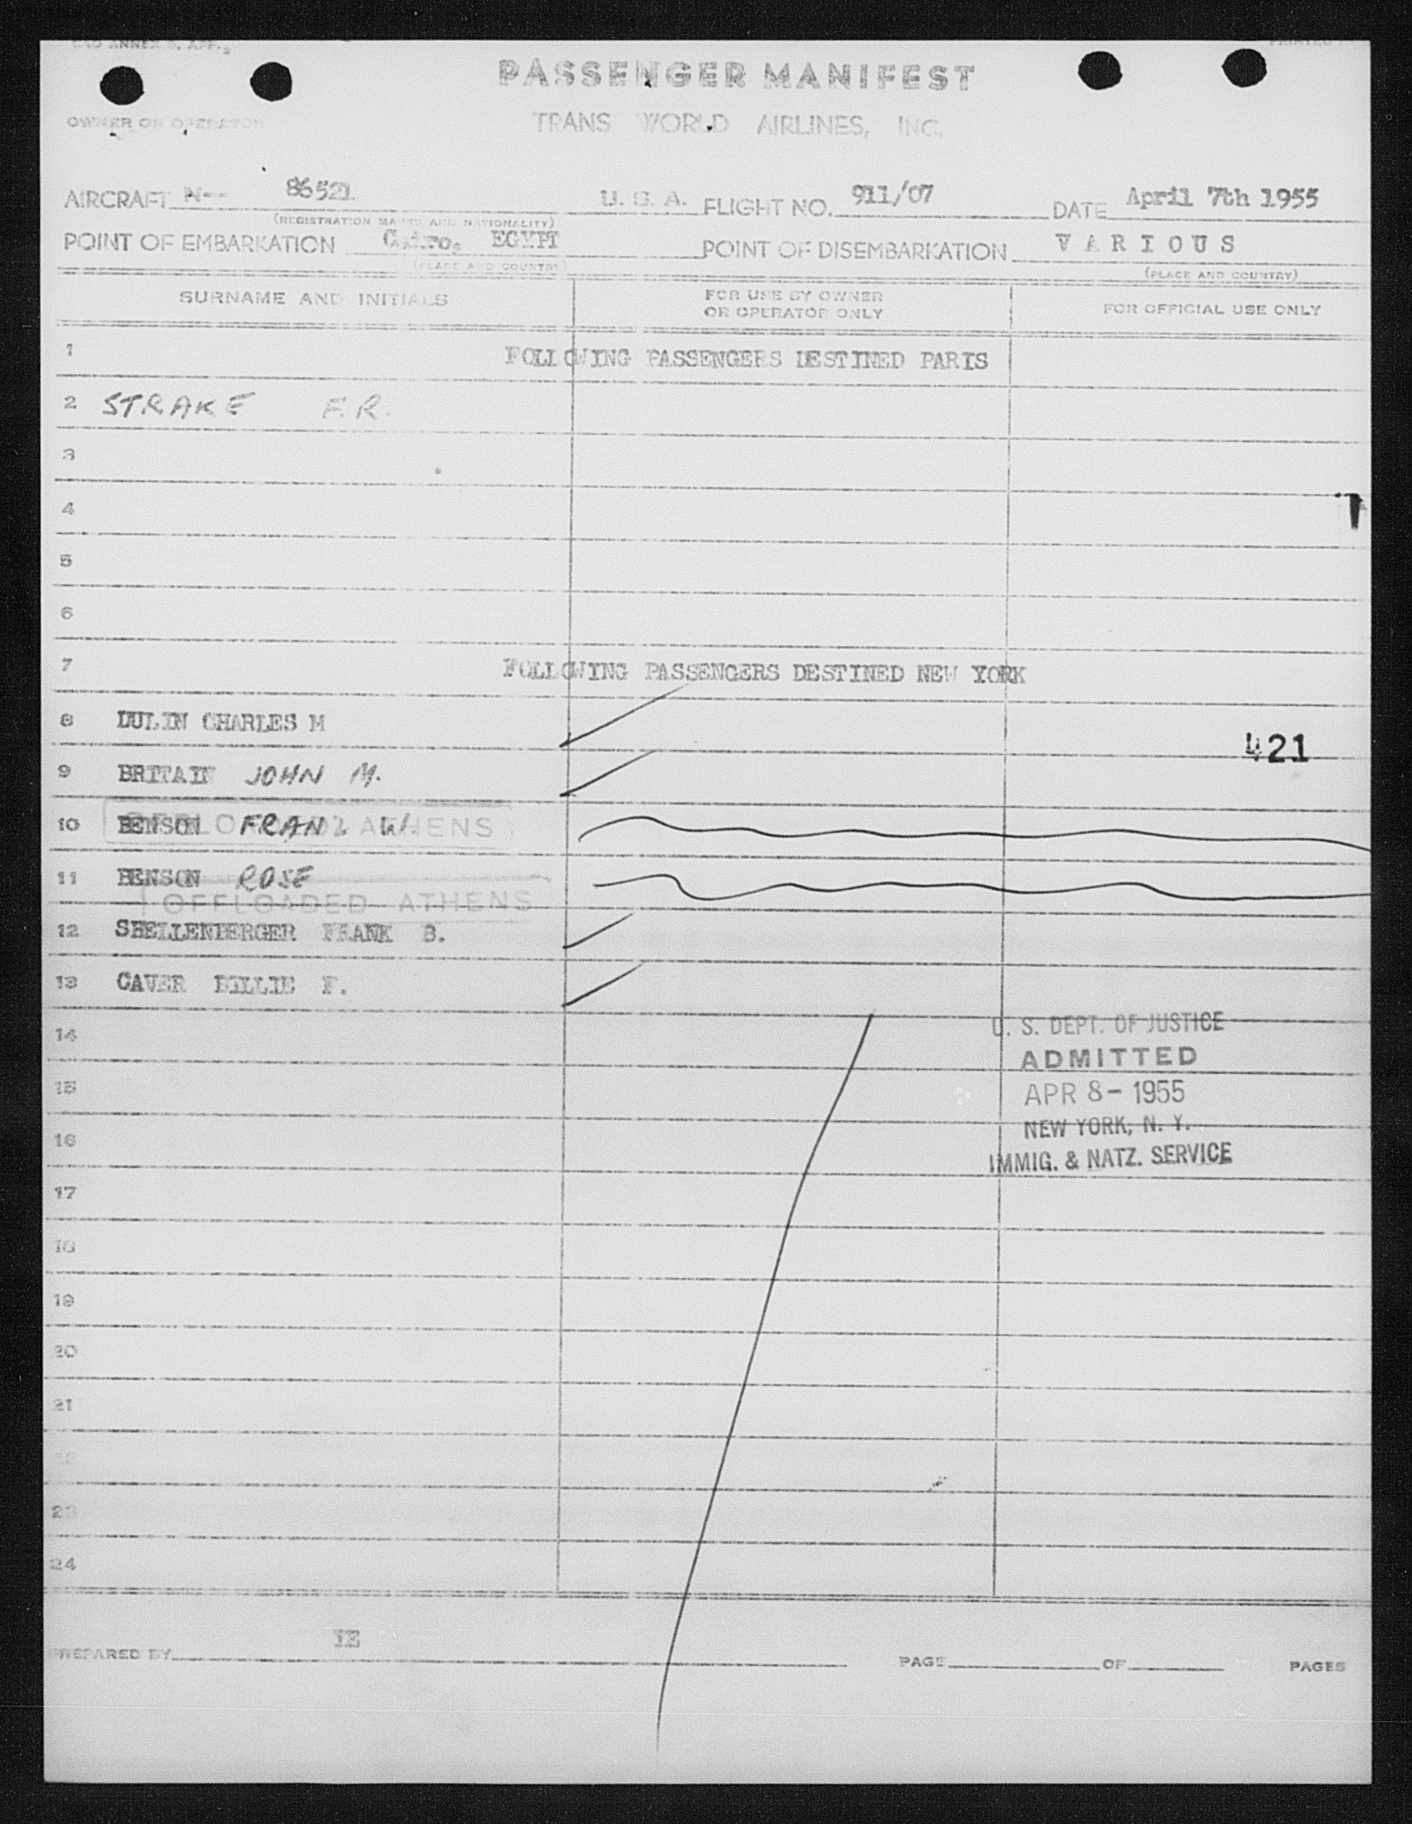 PASSENGER MANIFEST
OWNER OR OPERATOR TRANS WORLD AIRLINES, INC.
AIRCRAFT N-- 86521 U. S. A. FLIGHT NO. 911/07 DATE April 7th 1955
(REGISTRATION MARKS AND NATIONALITY)
POINT OF EMBARKATION Cairo, EGYPT POINT OF DISEMBARKATION VARIOUS
(PLACE AND COUNTRY) (PLACE AND COUNTRY)
SURNAME AND INITIALS FOR USE BY OWNER OR OPERATOR ONLY FOR OFFICIAL USE ONLY
1 FOLLOWING PASSENGERS DESTINED PARIS
2 STRAKE F.R.
3
4
5
6
7 FOLLOWING PASSENGERS DESTINED NEW YORK
8 DULIN CHARLES M
421
9 BRITAIN JOHN M.
10 BENSON FRANZ W.
OFFLOADED ATHENS
11 BENSON ROSE
OFFLOADED ATHENS
12 SHELLENBERGER FRANK B.
13 CAVER BILLIE F.
14
U. S. DEPT. OF JUSTICE
ADMITTED
15
APR 8- 1955
16
NEW YORK, N. Y.
IMMIG. & NATZ. SERVICE
17
18
19
20
21
22
23
24
PREPARED BY YE PAGE OF PAGES